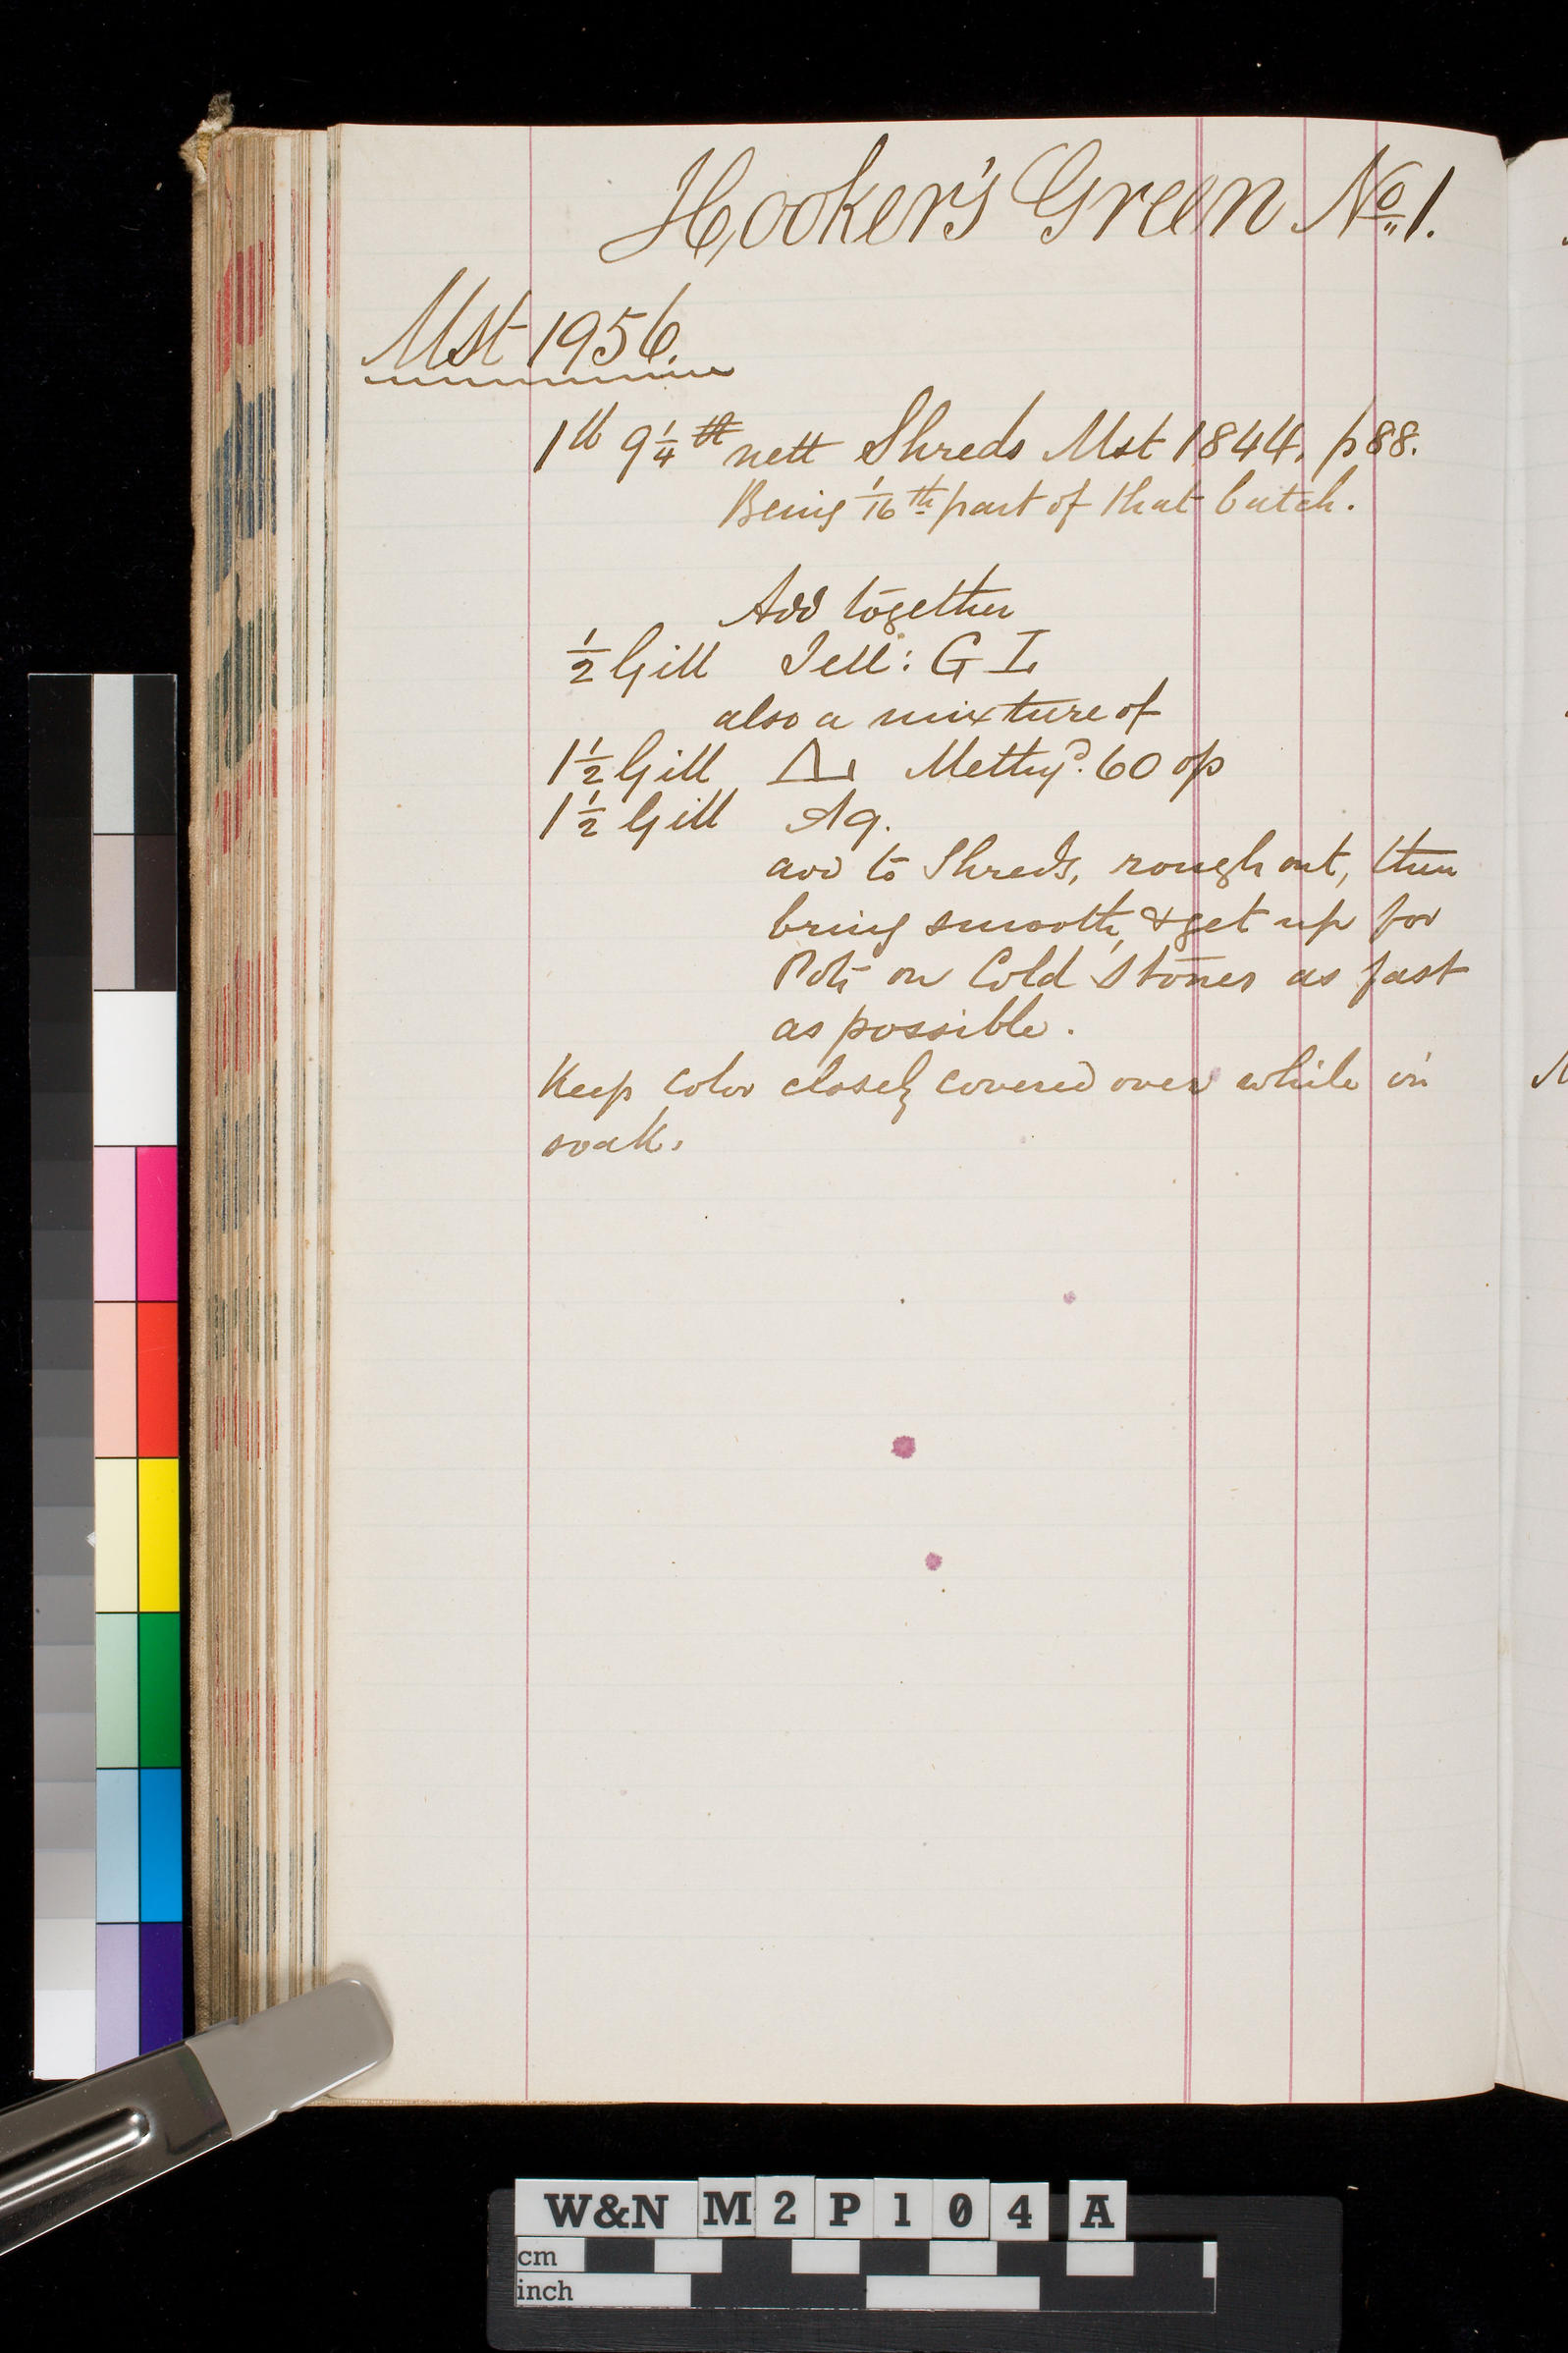 Hooker's Green No. 1.
Mst 1956.
1lb 9¼ nett Shreds Mst 1844, p88.
Being 1/16th part of that batch.
Add together
½ Gill Jell: G I
also a mixture of
1½ Gill Methyd. 60 op
1½ Gill Aq.
add to Shreds, rough out, then
bring smooth, & get up for
Pots on Cold Stones as fast
as possible.
Keep color closely covered over while in
soak.
W&N M2P104A
cm
inch